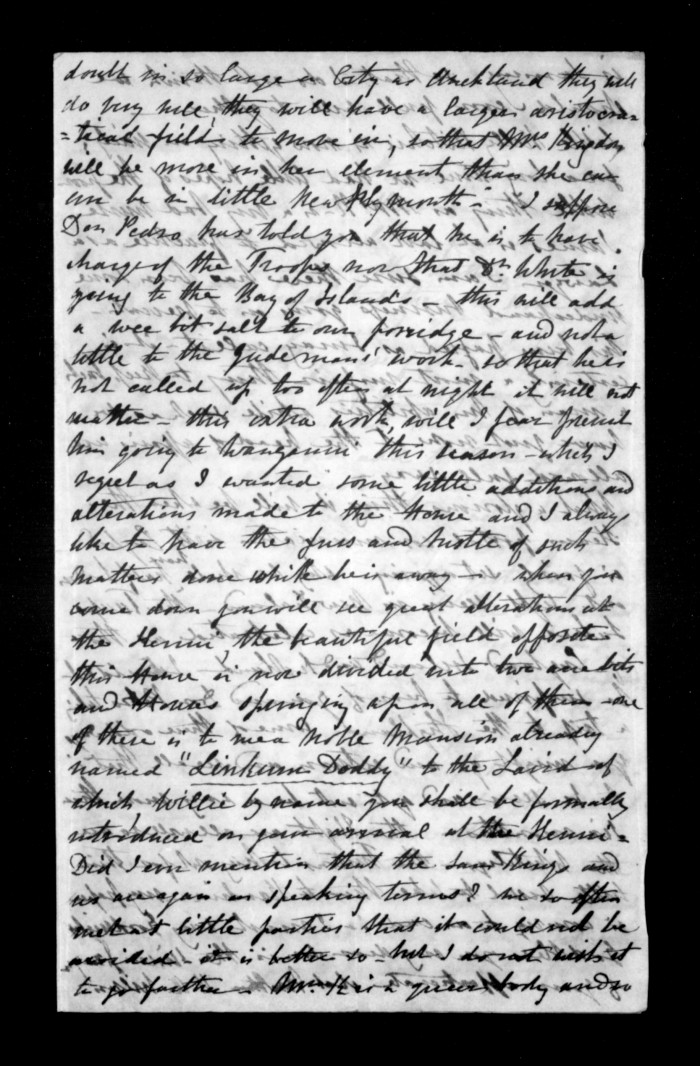 doubt in so large a City as Auckland they will
do very well, they will have a larger aristocra=
=tical field to move in, so that Mrs Kingdon
will be more in her element than she can
 be in little New Plymouth - I suppose
Don Pedro has told you that he is to have
charge of the Troops now that Dr White is
going to the Bay of Islands - this will add
a wee bit salt to our porridge - and not a
little to the Gudemans' work - so that he is
not called up too often at night it will not
matter - this extra work, will I fear prevent
him going to Wanganui this season - which I
regret as I wanted some little additions and
alterations made to the House and I always
like to have the fuss and bustle of such
matters done while he is away - when you
come down you will see great alterations at
the Henui, the beautiful field opposite
this House is now divided into two acre bits
and Houses springing upon all of them - one
of these is to me a Noble Mansion already
named "Linkum Doddy" to the Laird of
which Willie by name you shall be formally
introduced on your arrival at the Henui -
Did I ever mention that the Sam Kings and
us are again on speaking terms? we so often
met at little parties that it could not be
avoided - it is better so - but I do not wish it
to go farther - Mrs K is a queer body and so